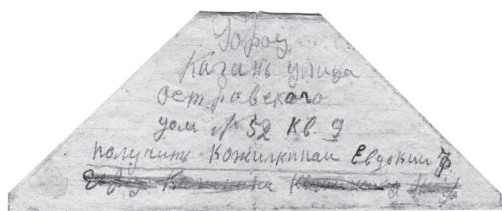 Город
Казань улица
Островского
дом № 52 Кв. 9
получить Кожилкиной Евдокии Ф.